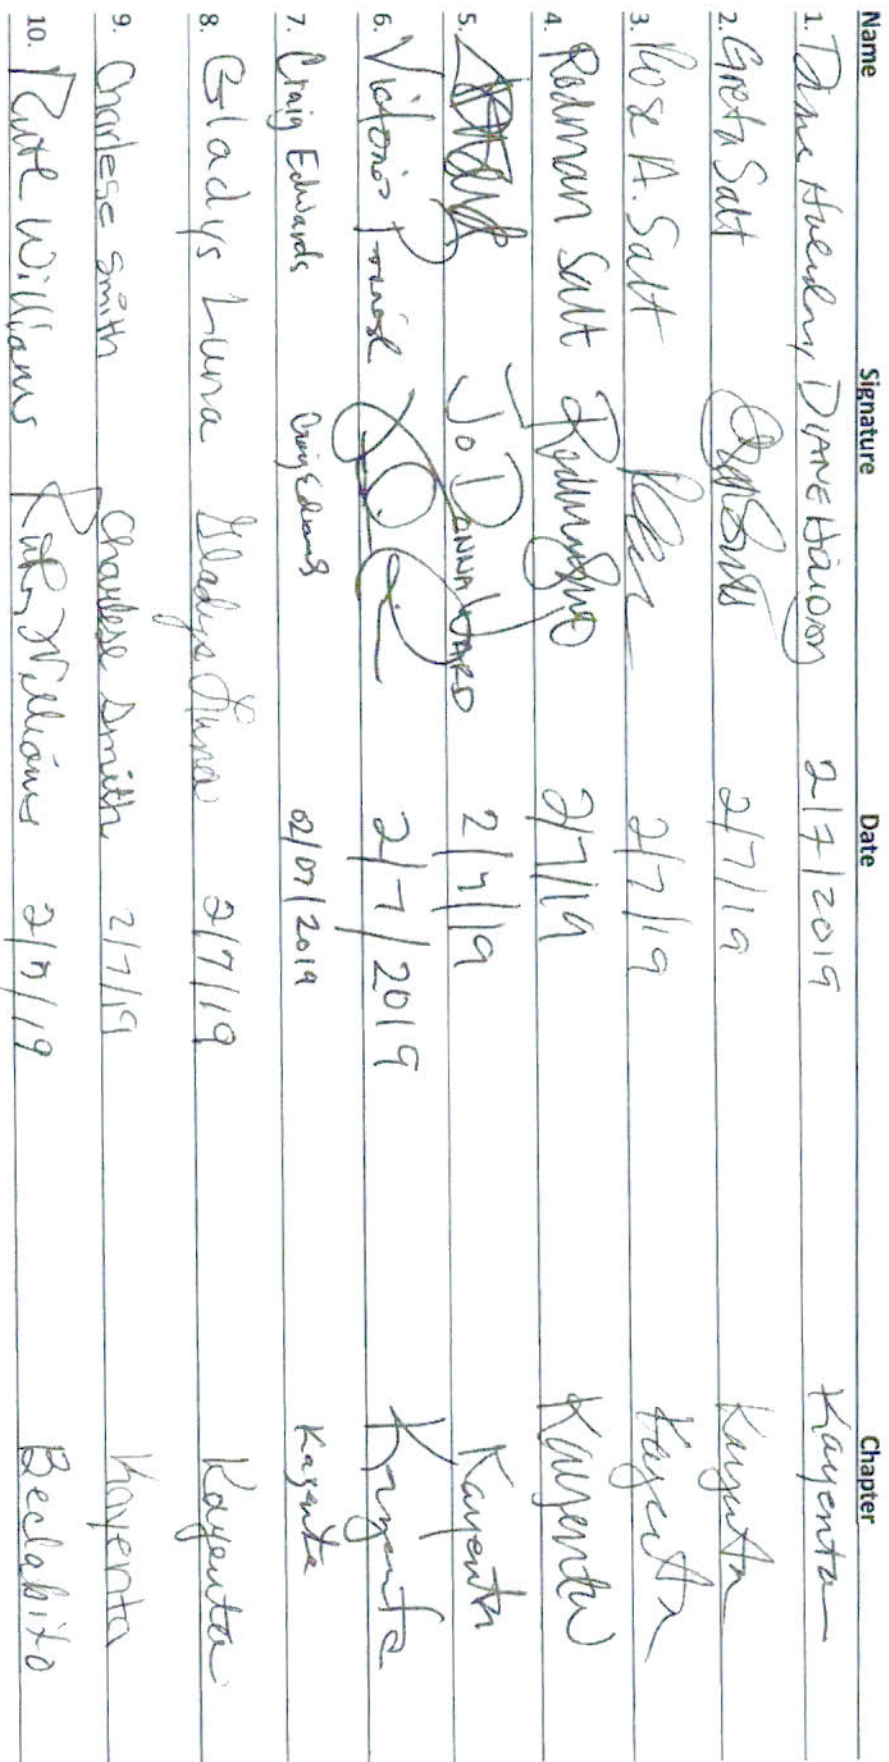 Name Signature Date Chapter
1. Diane DIANE 2/7/2019 Kayenta
2. Greta Salt 2/7/19 Kayenta
3. Rose A. Salt 2/7/19 Kayenta
4. Rodman Salt 2/7/19 Kayenta
5. JoDANNA WARD 2/7/19 Kayenta
6. Victoria 2/7/2019 Kayenta
7. Craig Edwards Craig Edwards 02/07/2019 Kayenta
8. Gladys Luna Gladys Luna 2/7/19 Kayenta
9. Charlese Smith Charlese Smith 2/7/19 Kayenta
10. Ruth Williams Ruth Williams 2/7/19 Beclabito